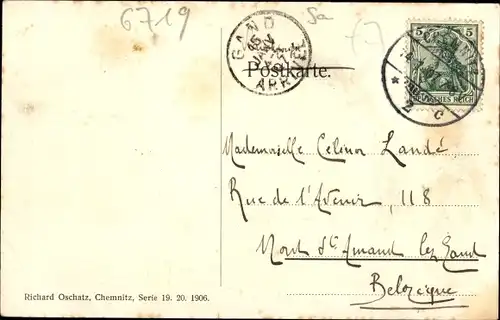 6719
5a
GAND
Postkarte.
5 5
DEUTSCHES REICH
Mademoiselle Celinor Landé
Rue de l'Avenir, 118
Mont St Amand lez Gand
Belgique
Richard Oschatz, Chemnitz, Serie 19. 20. 1906.